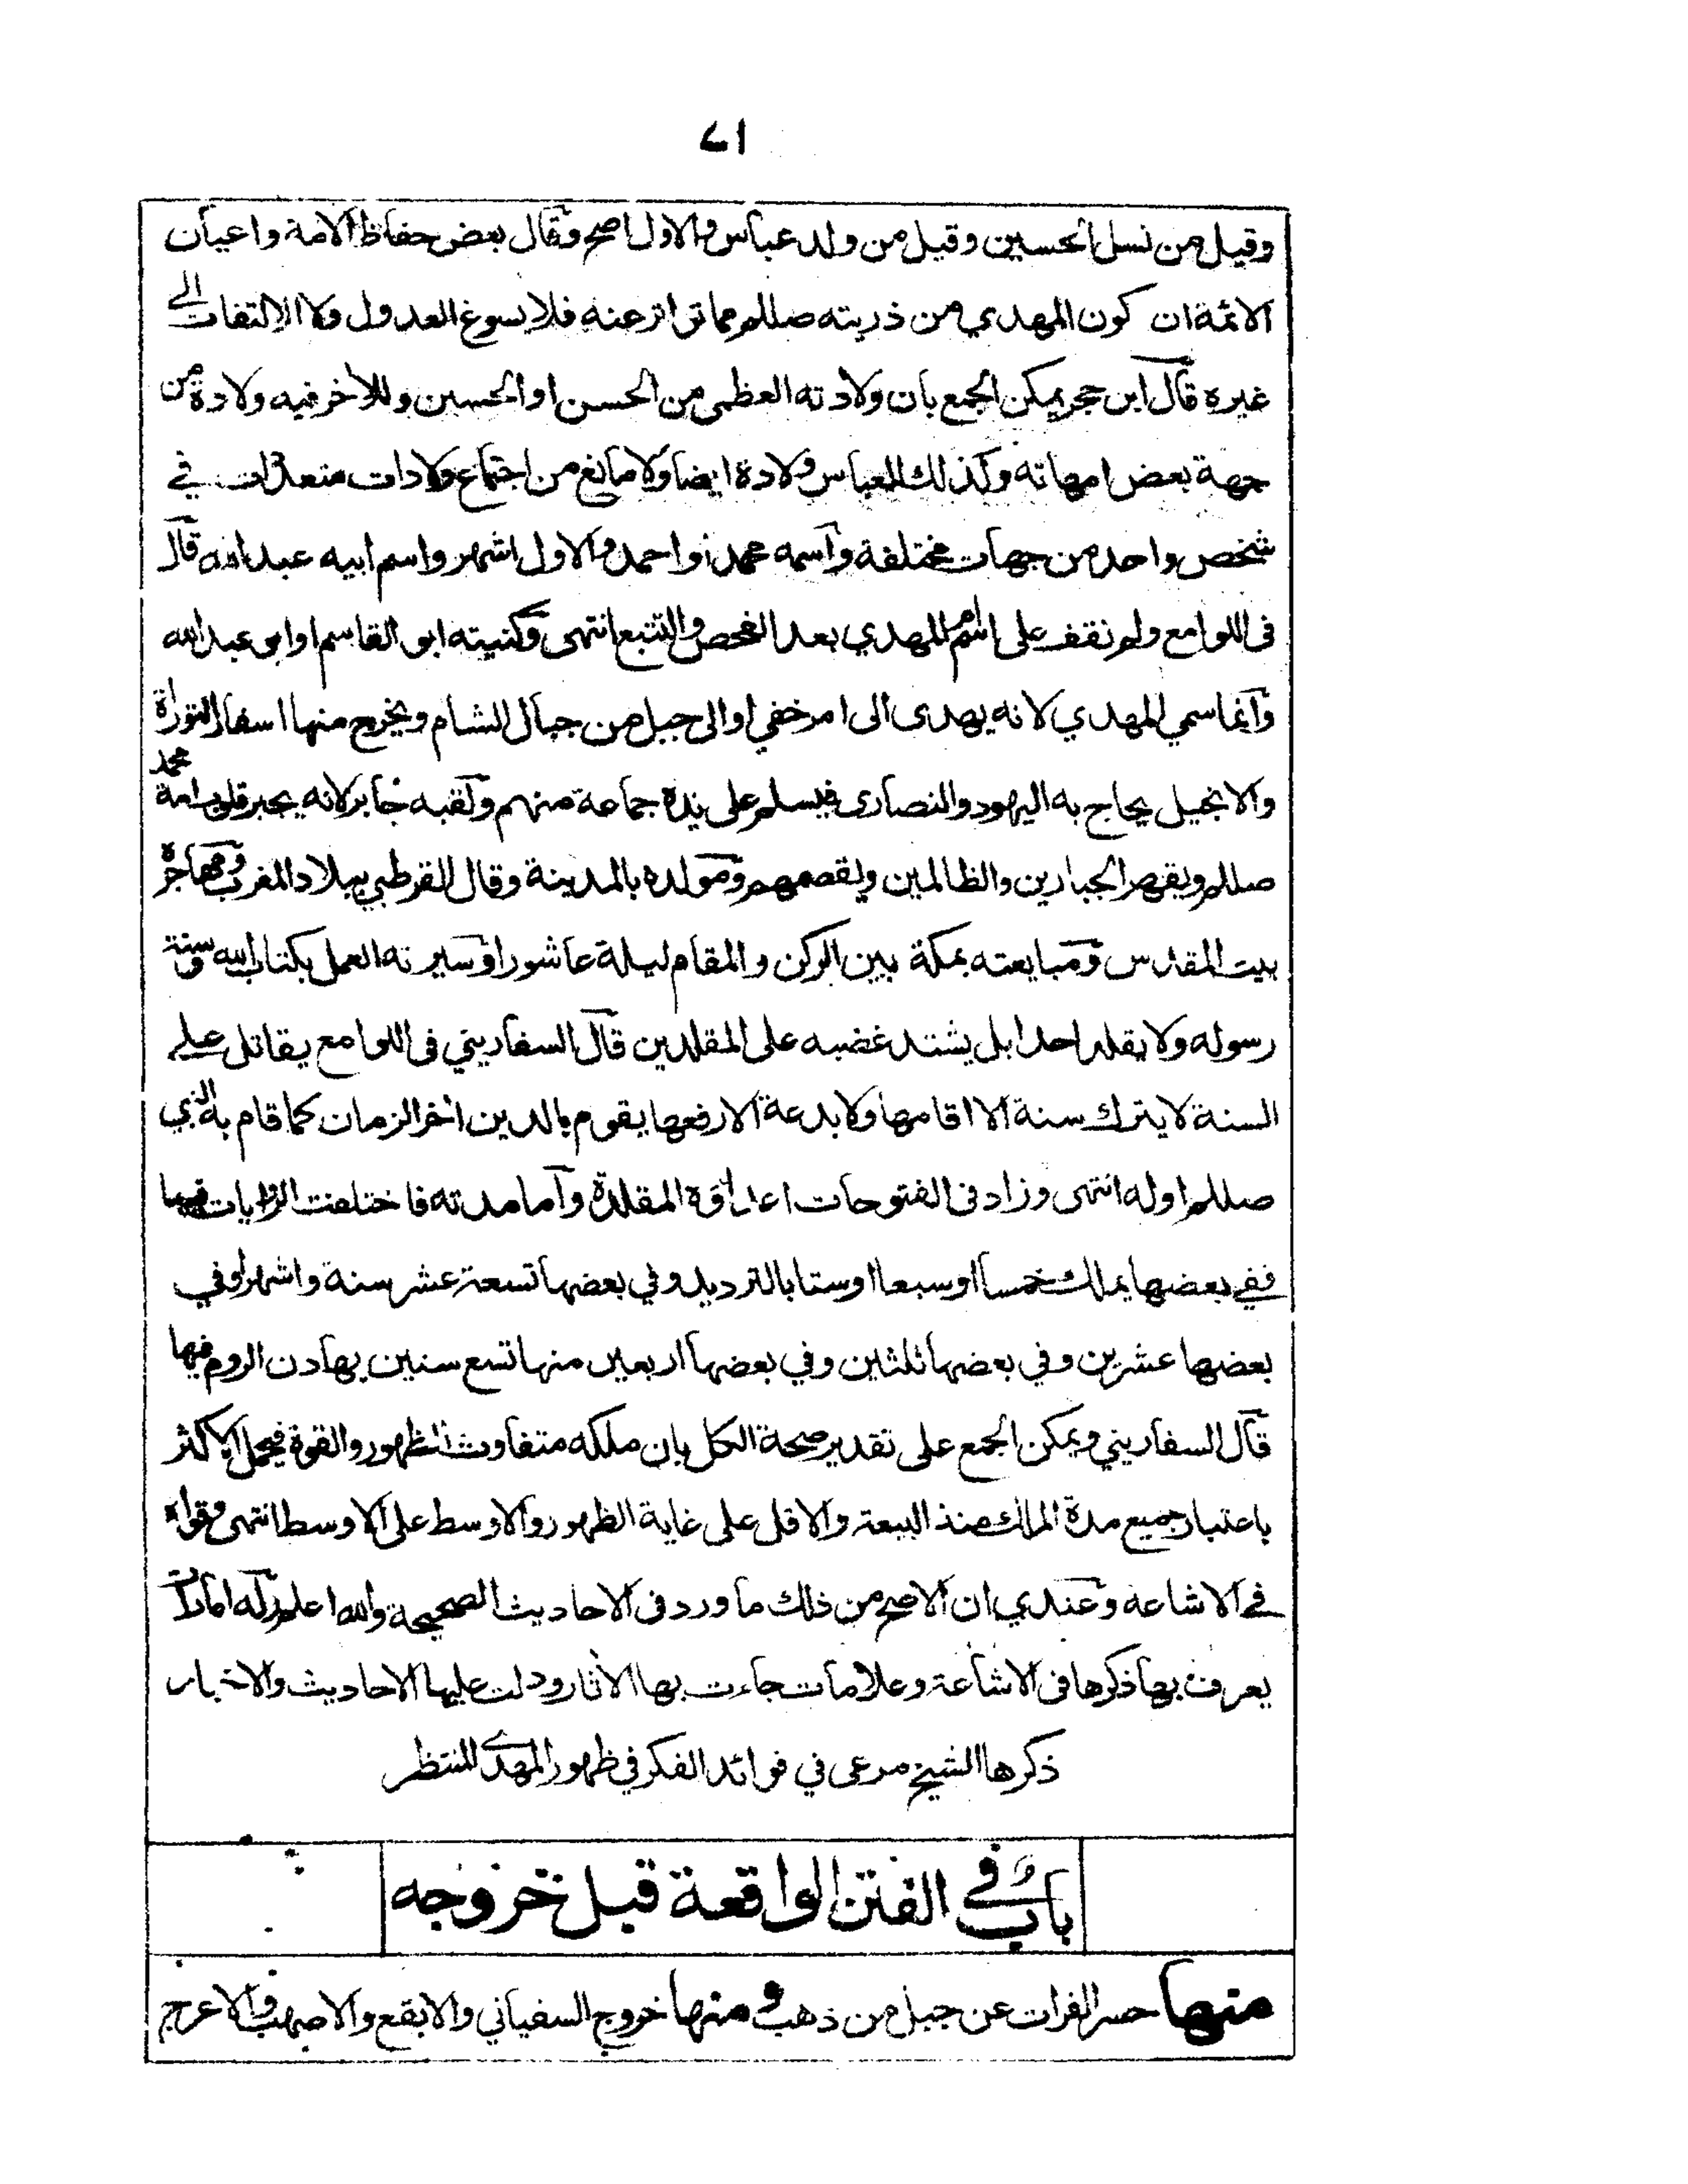 ٧١
وقيل من نسل الحسين وقيل من ولد عباس والاول اصح وقال بعض حفاظ الامة واعيان
الائمة ان كون المهدي من ذريته صللم مما تواتر عنه فلا يسوغ العدول ولا الالتفات الى
غيره قال ابن حجر يمكن الجمع بان ولادته العظمى من الحسن او الحسين وللاخر فيه ولادة من
جهة بعض امهاته وكذلك للعباس ولادة ايضا ولا مانع من اجتماع ولادات متعددات في
شخص واحد من جهات مختلفة واسمه محمد او احمد والاول اشهر واسم ابيه عبد الله قال
فى اللوامع ولم نقف على اسم ام المهدي بعد الفحص والتتبع انتهى وكنيته ابو القاسم او ابو عبد الله
وانما سمي المهدي لانه يهدى الى امر خفي او الى جبل من جبال الشام ويخرج منها اسفار التوراة
والانجيل يحاج به اليهود والنصارى فيسلم على يده جماعة منهم ولقبه جابر لانه يجبر قلوب امة محمد
صللم ويقهر الجبارين والظالمين ويقصمهم ومولده بالمدينة وقال القرطبي ببلاد المغرب ومهاجره
بيت المقدس ومبايعته بمكة بين الركن والمقام ليلة عاشورا وسيرته العمل بكتاب الله وسنة
رسوله ولا يقلد احدا بل يشتد غضبه على المقلدين قال السفاريني فى اللوامع يقاتل على
السنة لا يترك سنة الا اقامها ولا بدعة الا رفعها يقوم بالدين اخر الزمان كما قام به النبي
صللم اوله انتهى وزاد فى الفتوحات اعداؤه المقلدة واما مدته فاختلفت الروايات فيها
ففي بعضها يملك خمسا او سبعا او ستا بالترديد وفي بعضها تسعة عشر سنة واشهرا وفي
بعضها عشرين وفي بعضها ثلثين وفي بعضها اربعين منها تسع سنين يهادن الروم فيها
قال السفاريني ويمكن الجمع على تقدير صحة الكل بان ملكه متفاوت الظهور والقوة فيحمل الاكثر
باعتبار جميع مدة الملك منذ البيعة والاقل على غاية الظهور والاوسط على الاوسط انتهى وقواه
في الاشاعة وعندي ان الاصح من ذلك ما ورد فى الاحاديث الصحيحة والله اعلم وله امارات
يعرف بها ذكرها فى الاشاعة وعلامات جاءت بها الاثار ودلت عليها الاحاديث والاخبار
ذكرها الشيخ مرعى في فوائد الفكر في ظهور المهدى المنتظر
باب في الفتن الواقعة قبل خروجه
منها حسر الفرات عن جبل من ذهب ومنها خروج السفياني والابقع والاصهب والاعرج